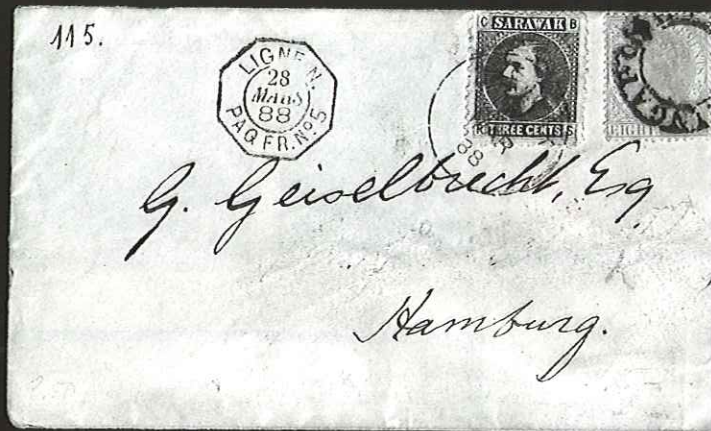 115.
LIGNE N.
28
MARS
88
PAQ. FR. Nº 5
C SARAWAK B
R THREE CENTS S
88
EIGHT
G. Geiselbrecht, Esq
Hamburg.